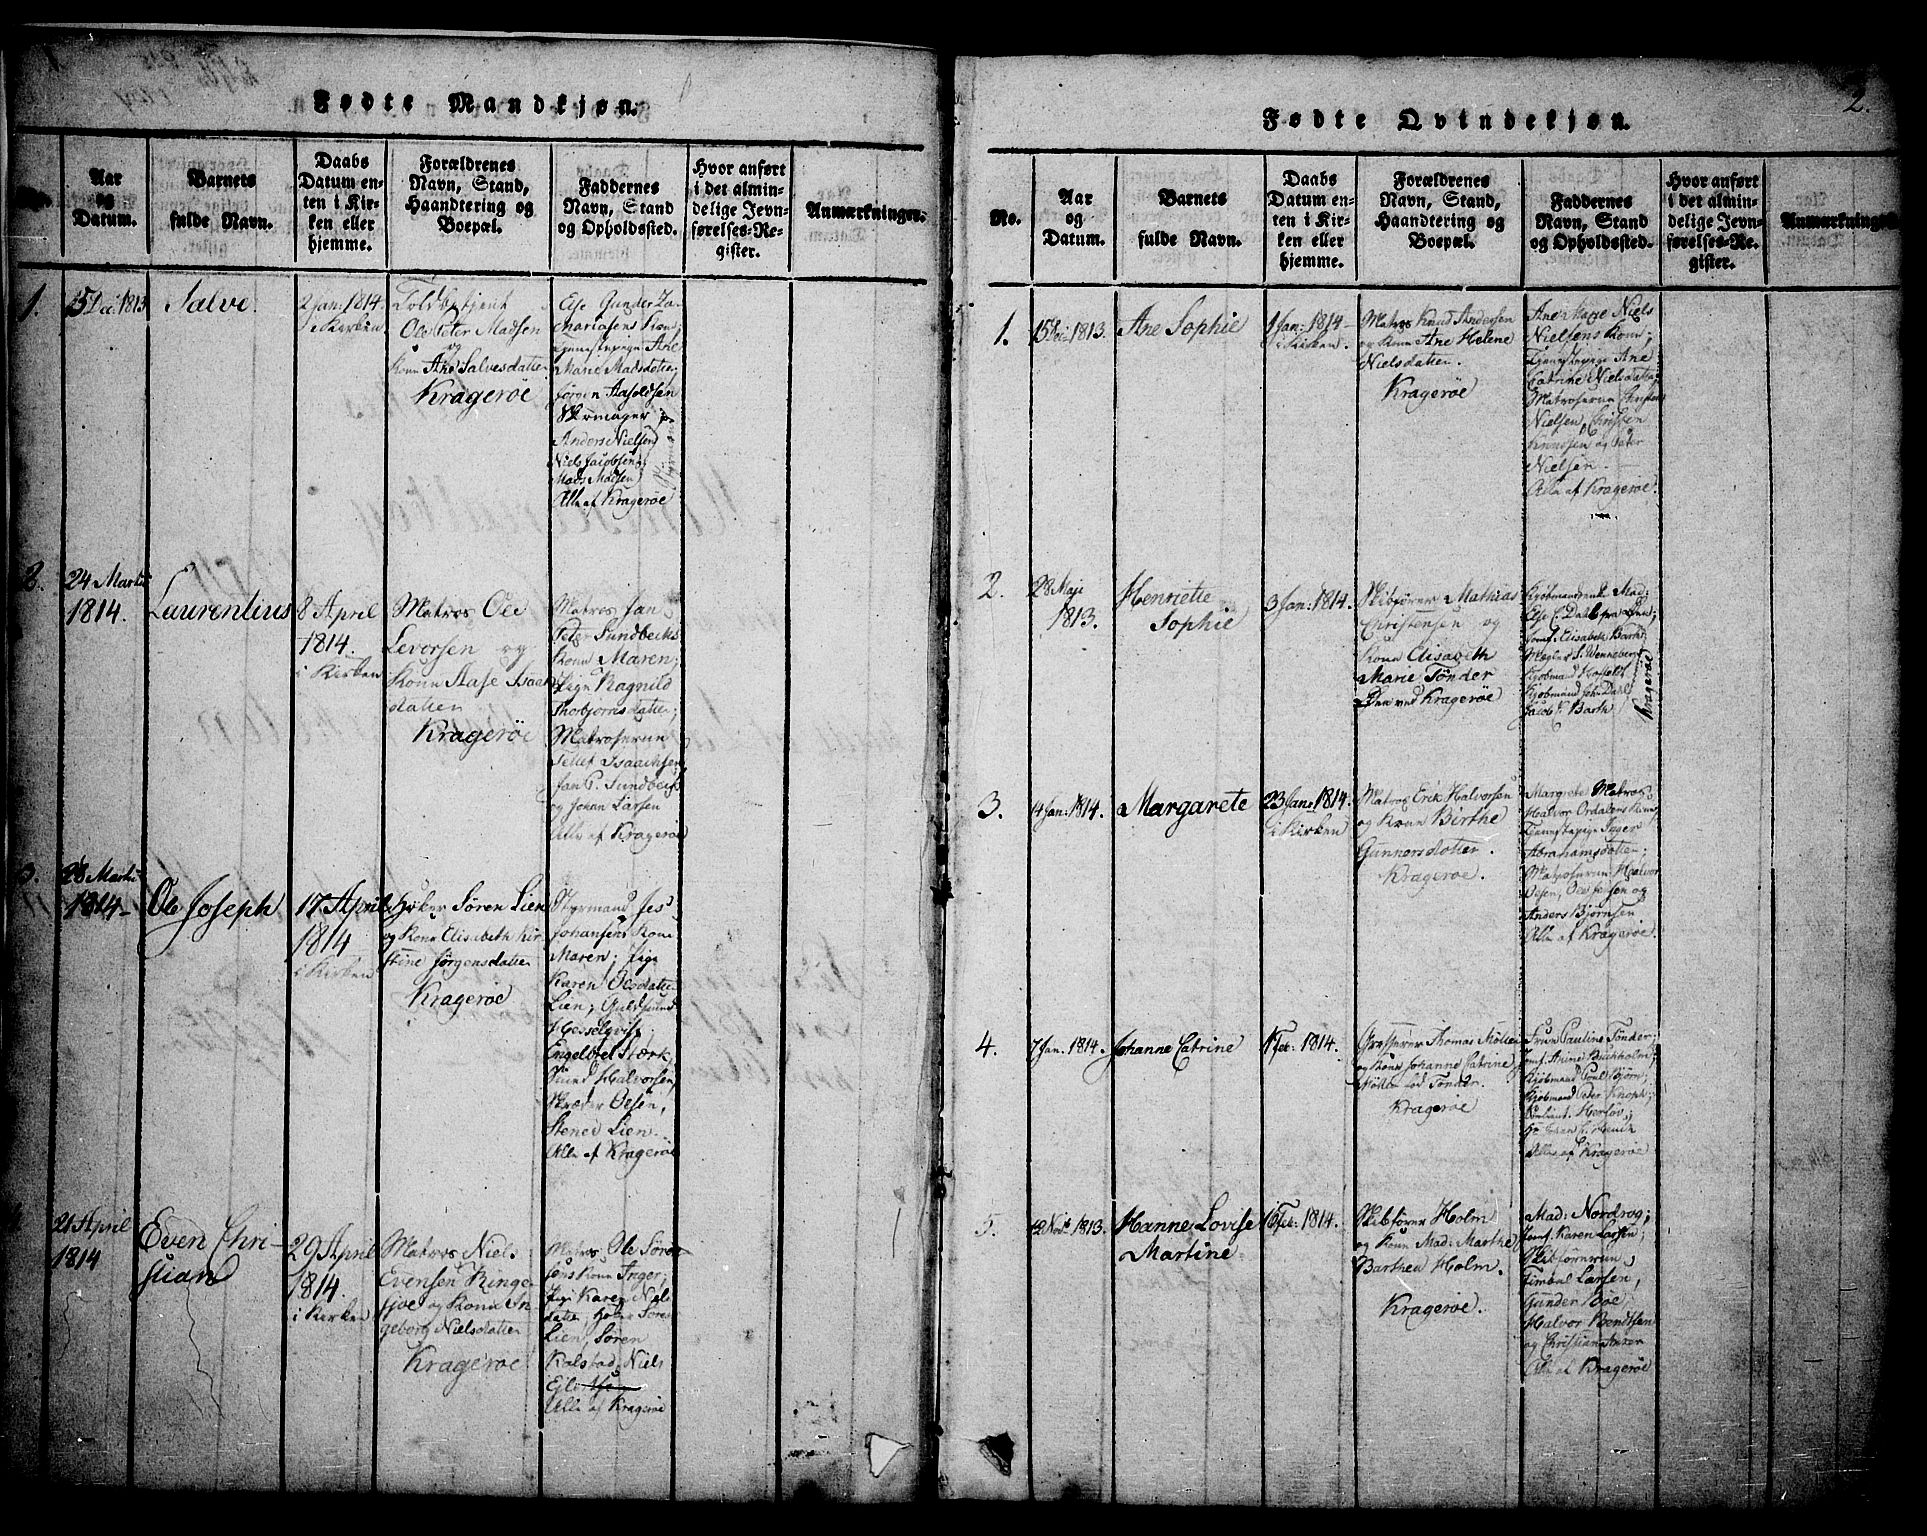 Fødte Mandkjøn.
Aar
og
Datum.
Barnets
fulde Navn.
Daabs
Datum en-
ten i Kir-
ken eller
hjemme.
Forældrenes
Navn, Stand,
Haandtering og
Boepæl.
Faddernes
Navn, Stand
og Opholdssted.
Hvor anført
i det almin-
delige Jevn-
førelses-Re-
gister.
Anmærkninger.
1.
15 Dec: 1813
Salve.
2 Jan: 1814.
i Kirken
Toldbetjent
Ole Peter Madsen
og
Kone Ane Salvesdatter
Kragerøe
Else Gunder Za-
chariasens Kone;
Tjenestepige Ane
Marie Madsdatter;
Jørgen Aasoldsen
Anders Nielsen
Niels Jacobsen
Mads Madsen
Alle af Kragerøe
2.
24 Martii
1814.
Laurentius
8 April
1814.
i Kirken
Matros Ole
Levorsen og
Kone Aase Isaaks
datter
Kragerøe
Matros Jan
Peter Sundbecks
Kone Maren;
Pige Ragnild
Thorbjørnsdatter;
Matroserne
Tellef Isaachsen
Jan P. Sundbeck
og Johan Larsen
Alle af Kragerøe
3.
28 Martii
1814
Ole Joseph
17 April
1814
i Kirken
Høker Søren Lien
og Kone Elisabeth Kir-
stine Jørgensdatter
Kragerøe
Styrmand Jes
Johansens Kone
Maren; Pige
Karen Olesdatter
Lien; Guldsmed
Hesselqvist;
Engelbret Stærk,
Halvorsen,
Skræder Olsen,
Stened Lien.
Alle af Kragerøe
21 April
1814
Even Chri-
stian
29 April
1814.
i Kirken
Matros Niel
Evensen Ringe-
fjoe og Kone In
geborg Nielsdatter
Kragerøe
Matros Ole Søren
sens Kone Inger;
Pige Karen Niels
datter, Høker Søren
Lien, Søren
Kalstad, Niels
Alle af Kragerøe
2.
Fødte Qvindekjøn.
No.
Aar
og
Datum.
Barnets
fulde Navn.
Daabs
Datum en-
ten i Kir-
ken eller
hjemme.
Forældrenes
Navn, Stand,
Haandtering og
Boepæl.
Faddernes
Navn, Stand
og Opholdssted.
Hvor anført
i det almin-
delige Jevn-
førelses-Re-
gister.
Anmærkninger
1.
15 Dec: 1813.
Ane Sophie
1 Jan: 1814
i Kirken.
Matros Knud Andersen
og Kone Ane Helene
Nielsdatter.
Kragerøe
Ane Marie Niels
Nielsens Kone;
Tjenestepige Ane
Catrine Nielsdatter;
Matroserne Christen
Nielsen, Christen
Knudsen og Peter
Nielsen.
Alle af Kragerøe.
2.
28 Maji
1813.
Henriette
Sophie
3 Jan: 1814.
Skibfører Mathias
Christensen og
Kone Elisabeth
Marie Tønder
Øen ved Kragerøe
Mad:
Else C. Dahl
Jomf. Elisabeth Barth
Mægler S. Wenneberg
Kjøbmand
Kjøbmand Joh: Dahl
Jacob F. Barth
Kragerøe
3.
14 Jan: 1814.
Margarete
23 Jan: 1814.
i Kirken
Matros Erik Halvorsen
og Kone Birthe
Gunnersdatter.
Kragerøe.
Margrete Matros
Halvor Ordalens Kone;
Tjenestepige Inger
Abrahamsdatter;
Matroserne Halvor
Olsen, Ole Jensen og
Anders Bjørnsen.
Alle af Kragerøe.
4.
7 Jan. 1814.
Johanne Catrine
1 Feb: 1814.
Thomas Møller
og Kone Johanne Catrine
Møller fød Tønder.
Kragerøe
Frue Pauline Tønder;
Jomf. Anine Buchholm;
Kjøbmand Poul Bjørn,
Kjøbmand Peter Knoph;
Alle af Kragerøe
5.
18 Nov: 1813.
Hanne Lovise
Martine
16 Feb: 1814.
Skibfører Holm
og Kone Mad: Marthe
Barthea Holm.
Kragerøe.
Mad: Nordrog;
Jomf. Karen Larsen;
Skibførerne
Timbal Larsen,
Gunder Bøe
Halvor Bendtsen
og Christian
Alle af Kragerøe